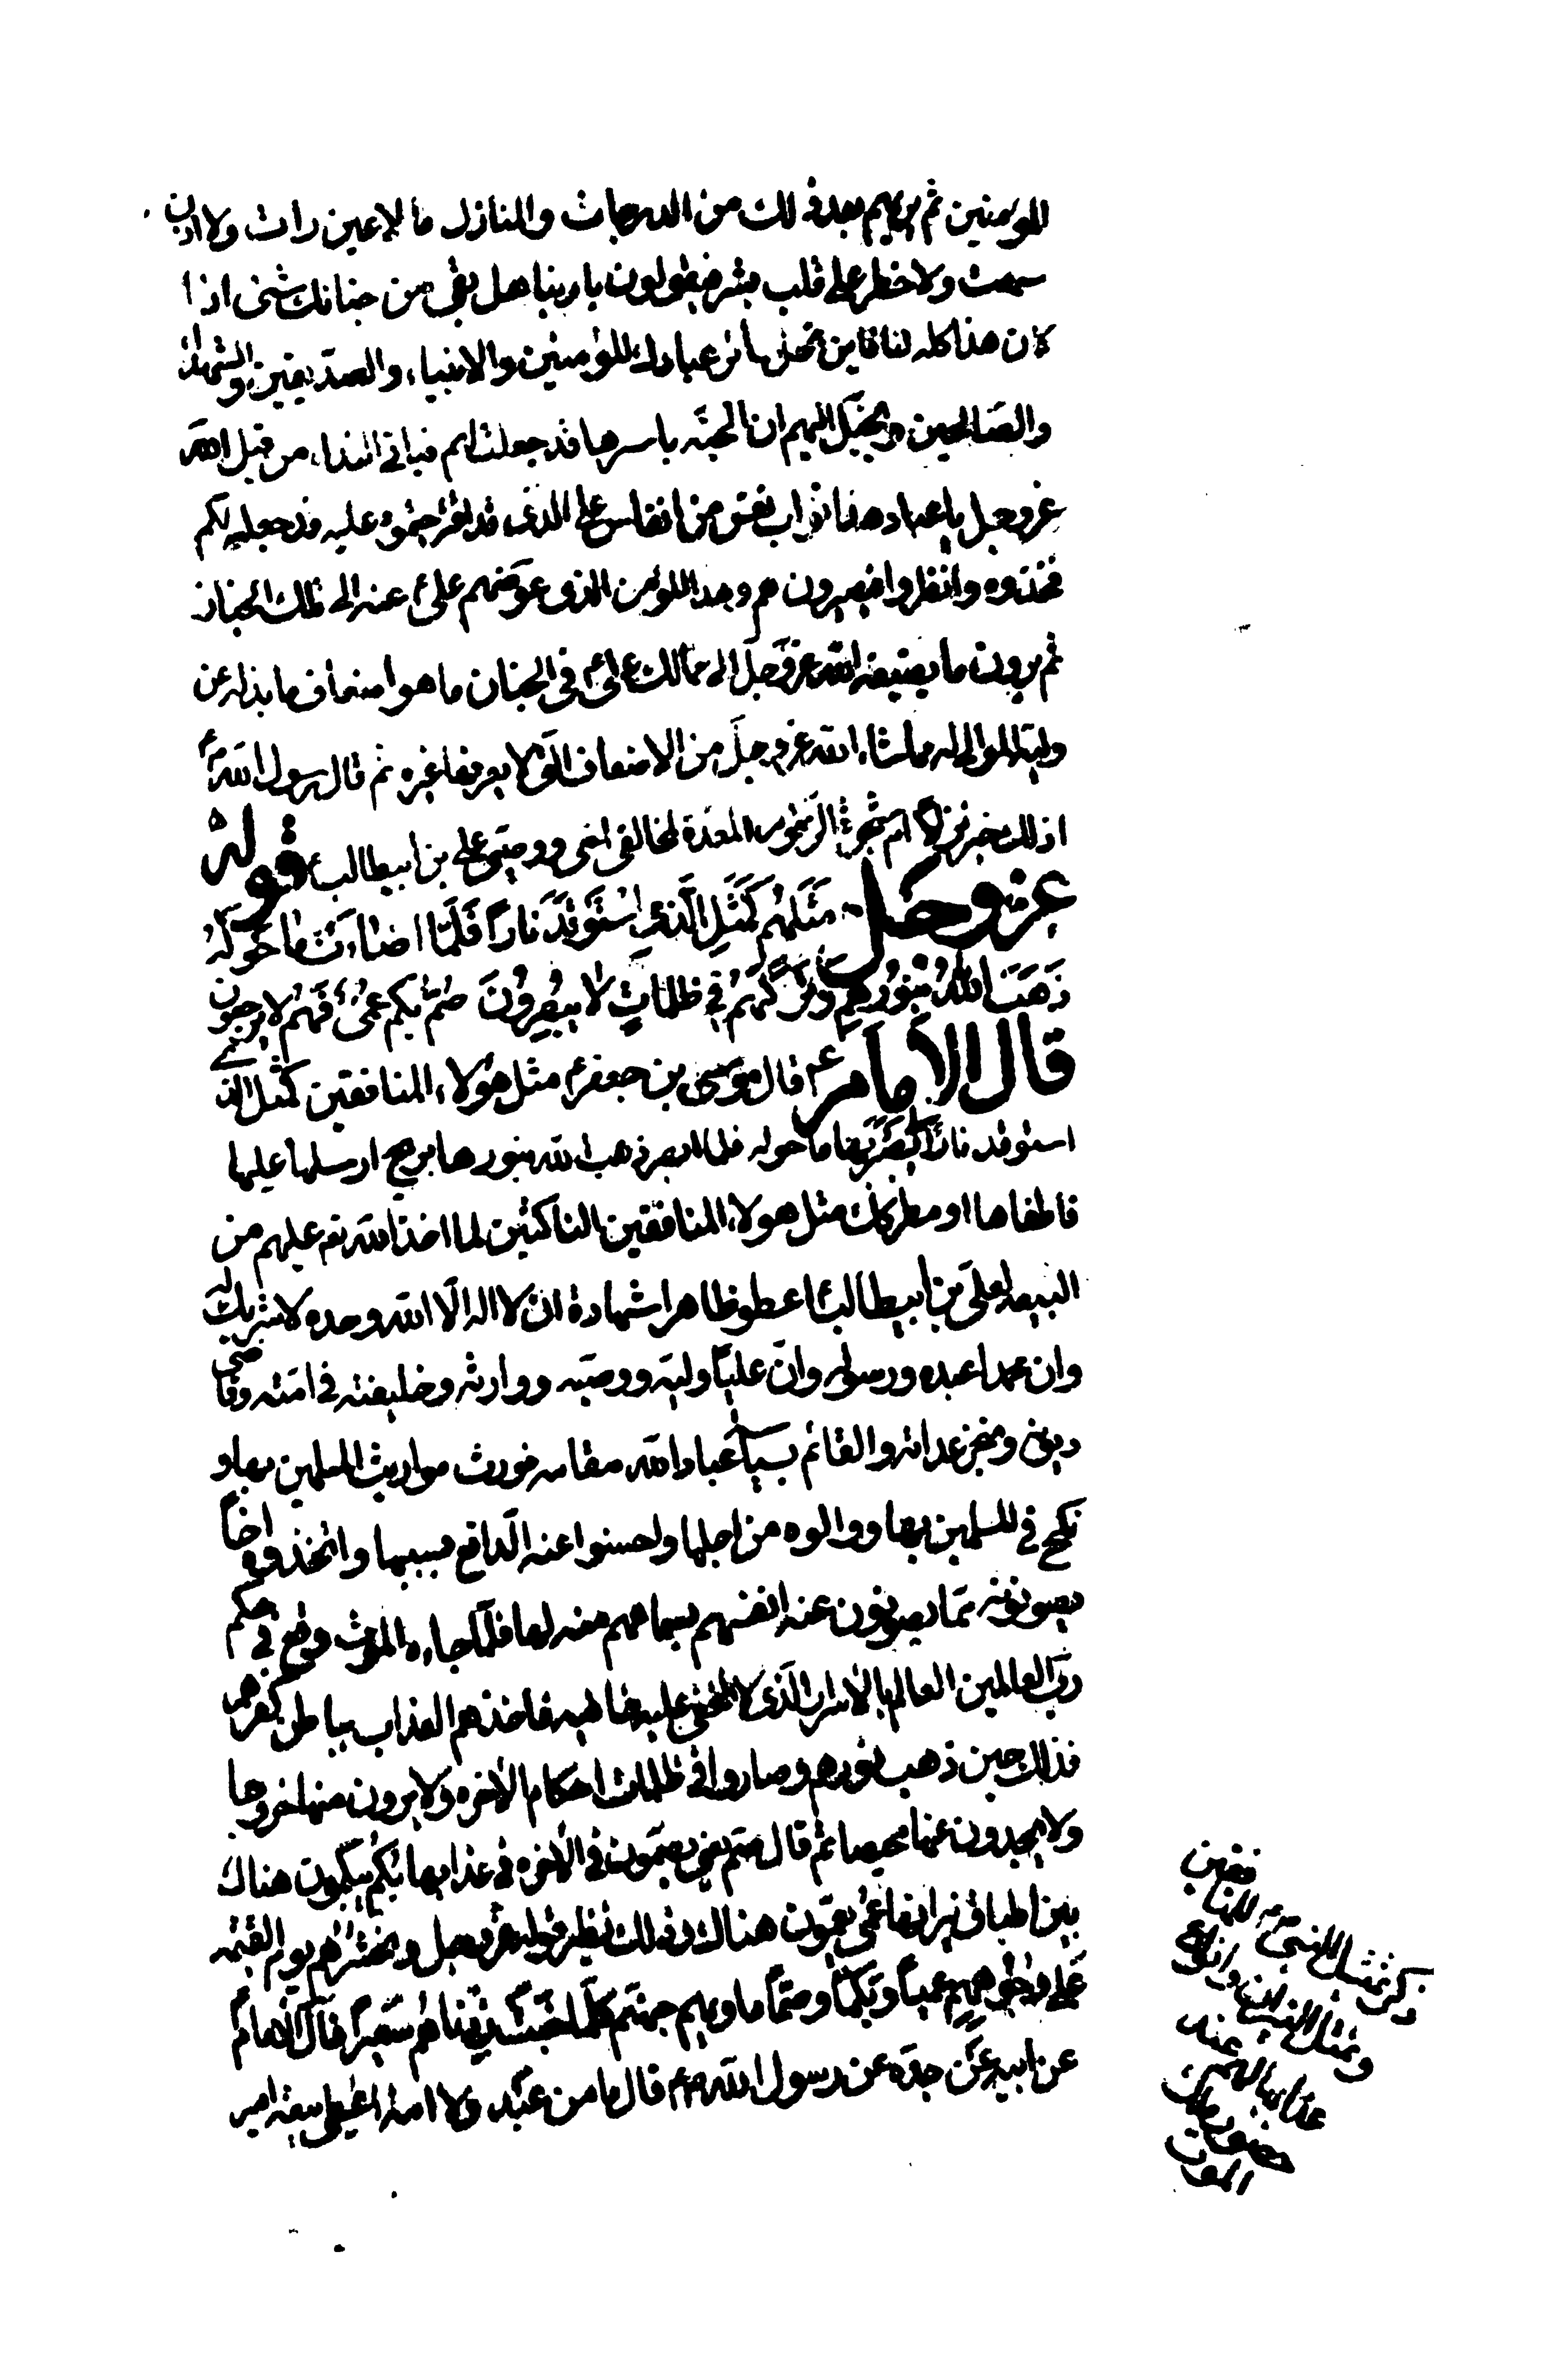 المومنين ثم يريهم بعد ذلك من الدرجات والمنازل ما لا عين رات ولا اذن
سمعت ولا خطر على قلب بشر فيقولون يا ربنا هل بقى من جناتك شئ اذا
كان هذا كله لنا فاين تحل سائر عبادك المؤمنين والانبياء والصديقين والشهداء
والصالحين ويخيل اليهم ان الجنه باسرها قد جعلت لهم فياتى النداء من قبل الله
عز وجل يا عبادى هذا ثواب نفس من انفاس على الذى قد اقترحتموه عليه قد جعله لكم
فخذوه وانظروا فيصيرون هم وهذا المؤمن الذى عوضهم على ع عنه الى تلك الجنان
ثم يرون ما يضيفه الله عز وجل الى ممالك على ع فى الجنان ما هو اضعاف ما بذله عن
وليه الموالى له مما شاء الله عز وجل من الاضعاف التى لا يعرفها غيره ثم قال رسول الله
اذلك خير نزلا ام شجرة الزقوم المعدة لمخالفى اخى ووصيى على بن ابيطالب ع قوله
عز وجل مَثَلُهُم كَمَثَلِ الَّذِى اسْتَوقَدَ نَاراً فَلَمَّا اضاءت ما حَولَهُ
ذَهَبَ اللهُ بِنُورِهِم وَتَرَكَهُم فِي ظلماتٍ لا يُبصِرُونَ صُمٌّ بُكم عُمىٌ فَهُم لا يرجعون
قال الامام ع قال موسى بن جعفر ع مثل هؤلاء المنافقين كمثل الذى
استوقد نارًا ابصر بها ما حوله فلما ابصر ذهب الله بنورها بريح ارسلها عليها
فاطفاها او مطر كذلك مثل هولاء المنافقين الناكثين لما اخذ الله تع عليهم من
البيعه لعلى بن ابيطالب ع اعطو ظاهرا شهادة ان لا اله الا الله وحده لا شريك له
وان محمدا عبده ورسوله وان علياً وليه ووصيه ووارثه وخليفته فى امته وقاضى
دينه ومنجز عداته والقائم بسياسة عباد الله مقامه فورث مواريث المسلمين بها و
نكح فى المسلمين بها ووالوه من اجلها واحسنوا عنه الدافع بسببها واتخذوه اخاً
يصونونه مما يصونون عنه انفسهم بسماعهم منه لها فلما جاءه الموت وقع فى حكم
رب العالمين العالم بالاسرار الذى لا تخفى عليه خافيه فاخذهم العذاب بباطن كفرهم
فذلك حين ذهب نورهم وصاروا فى ظلمات احكام الاخره ولا يرون منها خروجا
ولا يجدون عنها محيصا ثم قال صم يعنى يصمون فى الاخره فى عذابها بكم يبكمون هناك
بين اطباق نيرانها عمى يعمون هناك وذلك نظير قوله عز وجل ونحشرهم يوم القيمه
على وجوههم عمياً وبكماً وصمّاً ماويهم جهنم كلّما خبت زدناهم سعيراً قال الامام ع
عن ابيه عن جدّه عن رسول الله ص قال ما من عبد ولا امة اعطى بيعة امير
ذكر تمثيل النبى ص للمنافقين